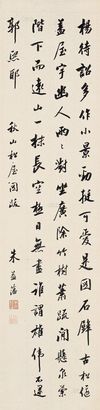 楊待詔多作小景動輒可愛是圖石壁古松偃
蓋屋宇幽人兩兩對坐廣除竹樹蕭疏懸水縈
階下而遠山一抹長空極目無盡誰謂雄偉不逮
郭熙耶 秋山松屋圖跋 朱益藩